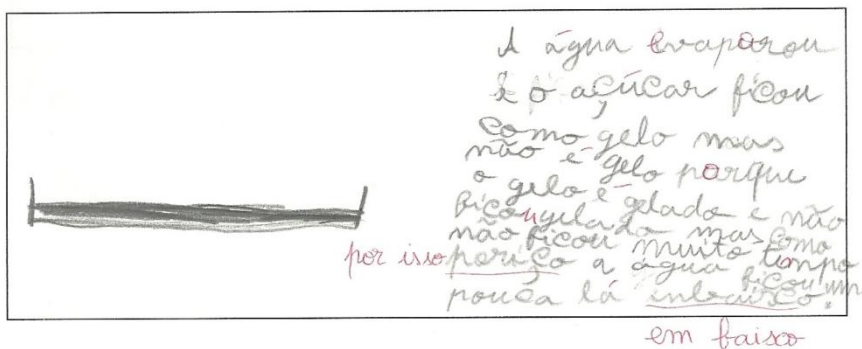 A água evaporou
e o açúcar ficou
como gelo mas
não é gelo porque
o gelo é gelado e não
ficou gelado mas como
não ficou muito tempo
por isso poriço a água ficou um
pouca lá inbaisco.
em baisco